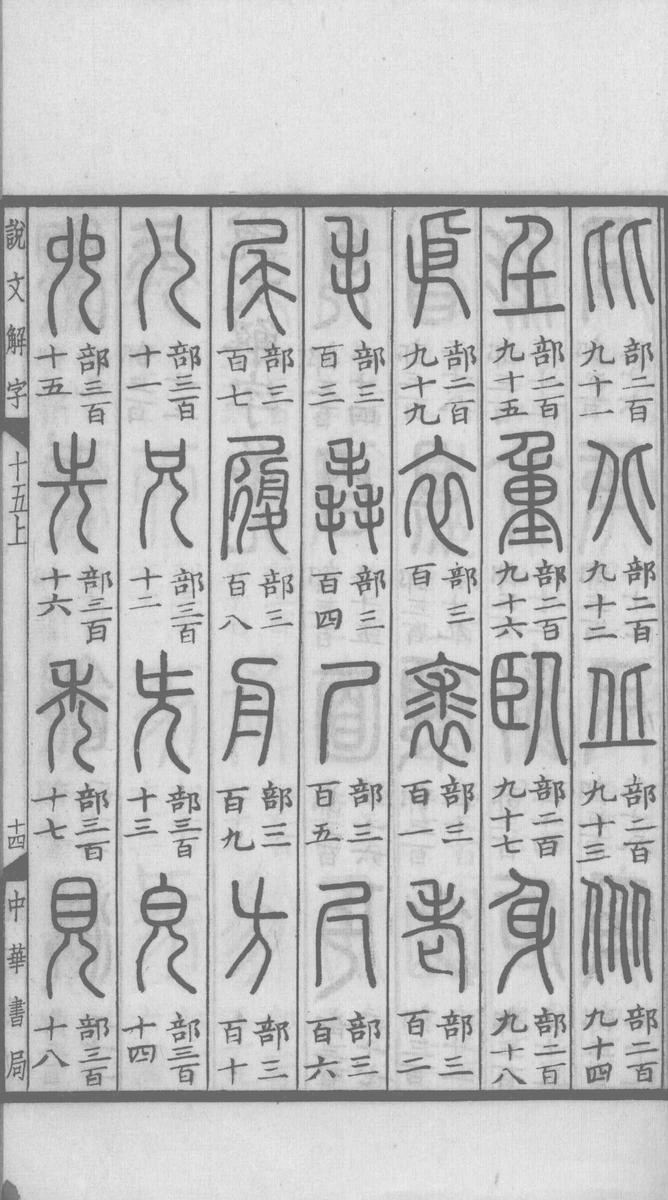 比部二百九十一 北部二百九十二 丘部二百九十三 㐺部二百九十四
𡈼部二百九十五 重部二百九十六 臥部二百九十七 身部二百九十八
㐆部二百九十九 衣部三百 裘部三百一 老部三百二
毛部三百三 毳部三百四 尸部三百五 尺部三百六
尾部三百七 履部三百八 舟部三百九 方部三百十
儿部三百十一 兄部三百十二 兂部三百十三 皃部三百十四
𠑹部三百十五 先部三百十六 禿部三百十七 見部三百十八
說文解字 十五上 十四 中華書局